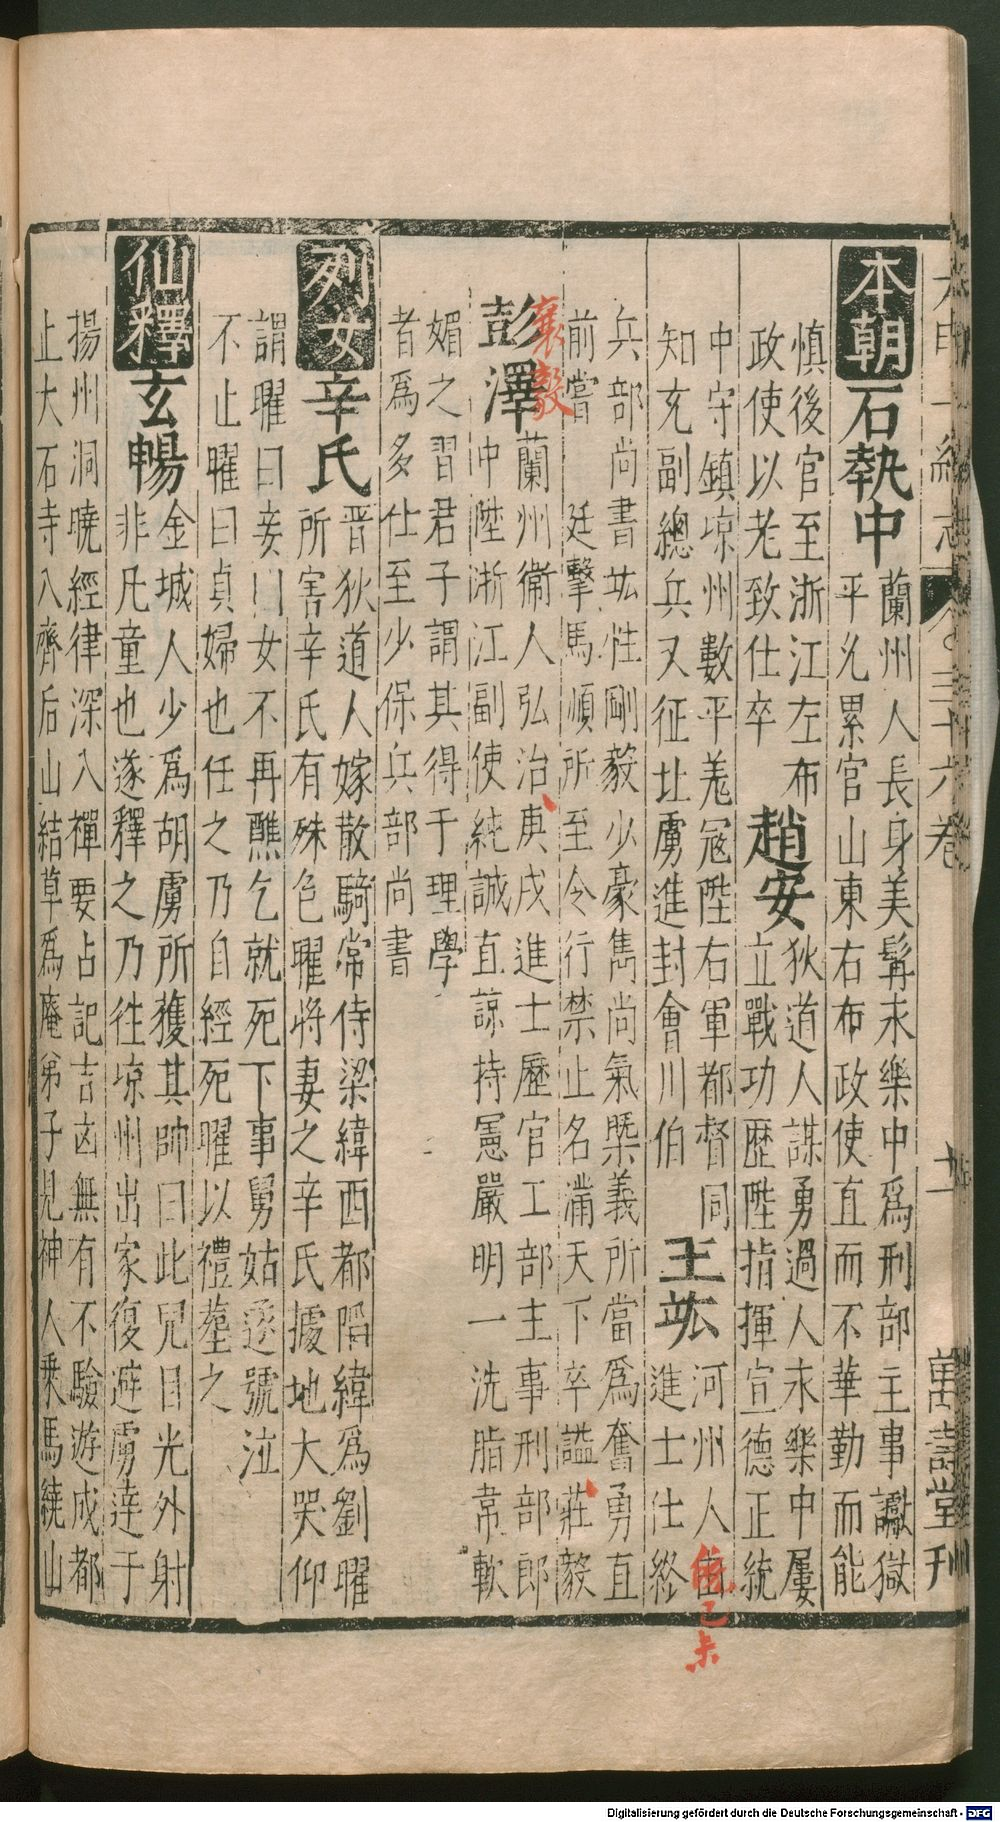 大明一統志 三十六卷 十一 萬壽堂刊
本朝 石執中 蘭州人長身美髯永樂中為刑部主事讞獄
平允累官山東右布政使直而不華勤而能
慎後官至浙江左布
政使以老致仕卒
趙安 狄道人謀勇過人永樂中屢
立戰功歷陞指揮宣德正統
中守鎮凉州數平羗冦陞右軍都督同
知充副總兵又征北虜進封會川伯
王竑 河州人由
統己未
進士仕終
兵部尚書竑性剛毅少豪雋尚氣槩義所當爲奮勇直
前嘗 廷擊馬順所至令行禁止名滿天下卒謚莊毅
襄毅
彭澤 蘭州衞人弘治庚戌進士歷官工部主事刑部郎
中陞浙江副使純誠直諒持憲嚴明一洗脂常軟
媚之習君子謂其得于理學
者爲多仕至少保兵部尚書
列女 辛氏 晋狄道人嫁散騎常侍梁緯西都陷緯爲劉曜
所害辛氏有殊色曜將妻之辛氏據地大哭仰
謂曜曰妾女不再醮乞就死下事舅姑遂號泣
不止曜曰貞婦也任之乃自經死曜以禮塟之
仙釋 玄暢 金城人少爲胡虜所獲其帥曰此兒目光外射
非凡童也遂釋之乃徃凉州出家復避虜達于
揚州洞曉經律深入禪要占記吉凶無有不驗遊成都
止大石寺入齊后山結草爲庵弟子見神人乘馬繞山
Digitalisierung gefördert durch die Deutsche Forschungsgemeinschaft - DFG